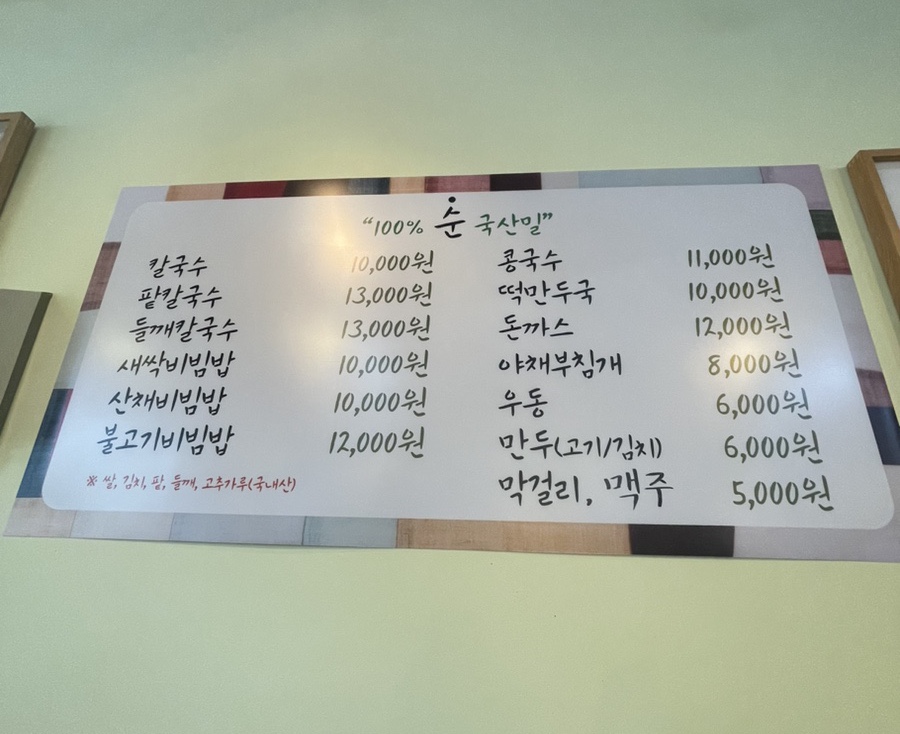 "100% 순 국산밀"
칼국수 10,000원
팥칼국수 13,000원
들깨칼국수 13,000원
새싹비빔밥 10,000원
산채비빔밥 10,000원
불고기비빔밥 12,000원
※ 쌀, 김치, 팥, 들깨, 고추가루(국내산)
콩국수 11,000원
떡만두국 10,000원
돈까스 12,000원
야채부침개 8,000원
우동 6,000원
만두(고기/김치) 6,000원
막걸리, 맥주 5,000원